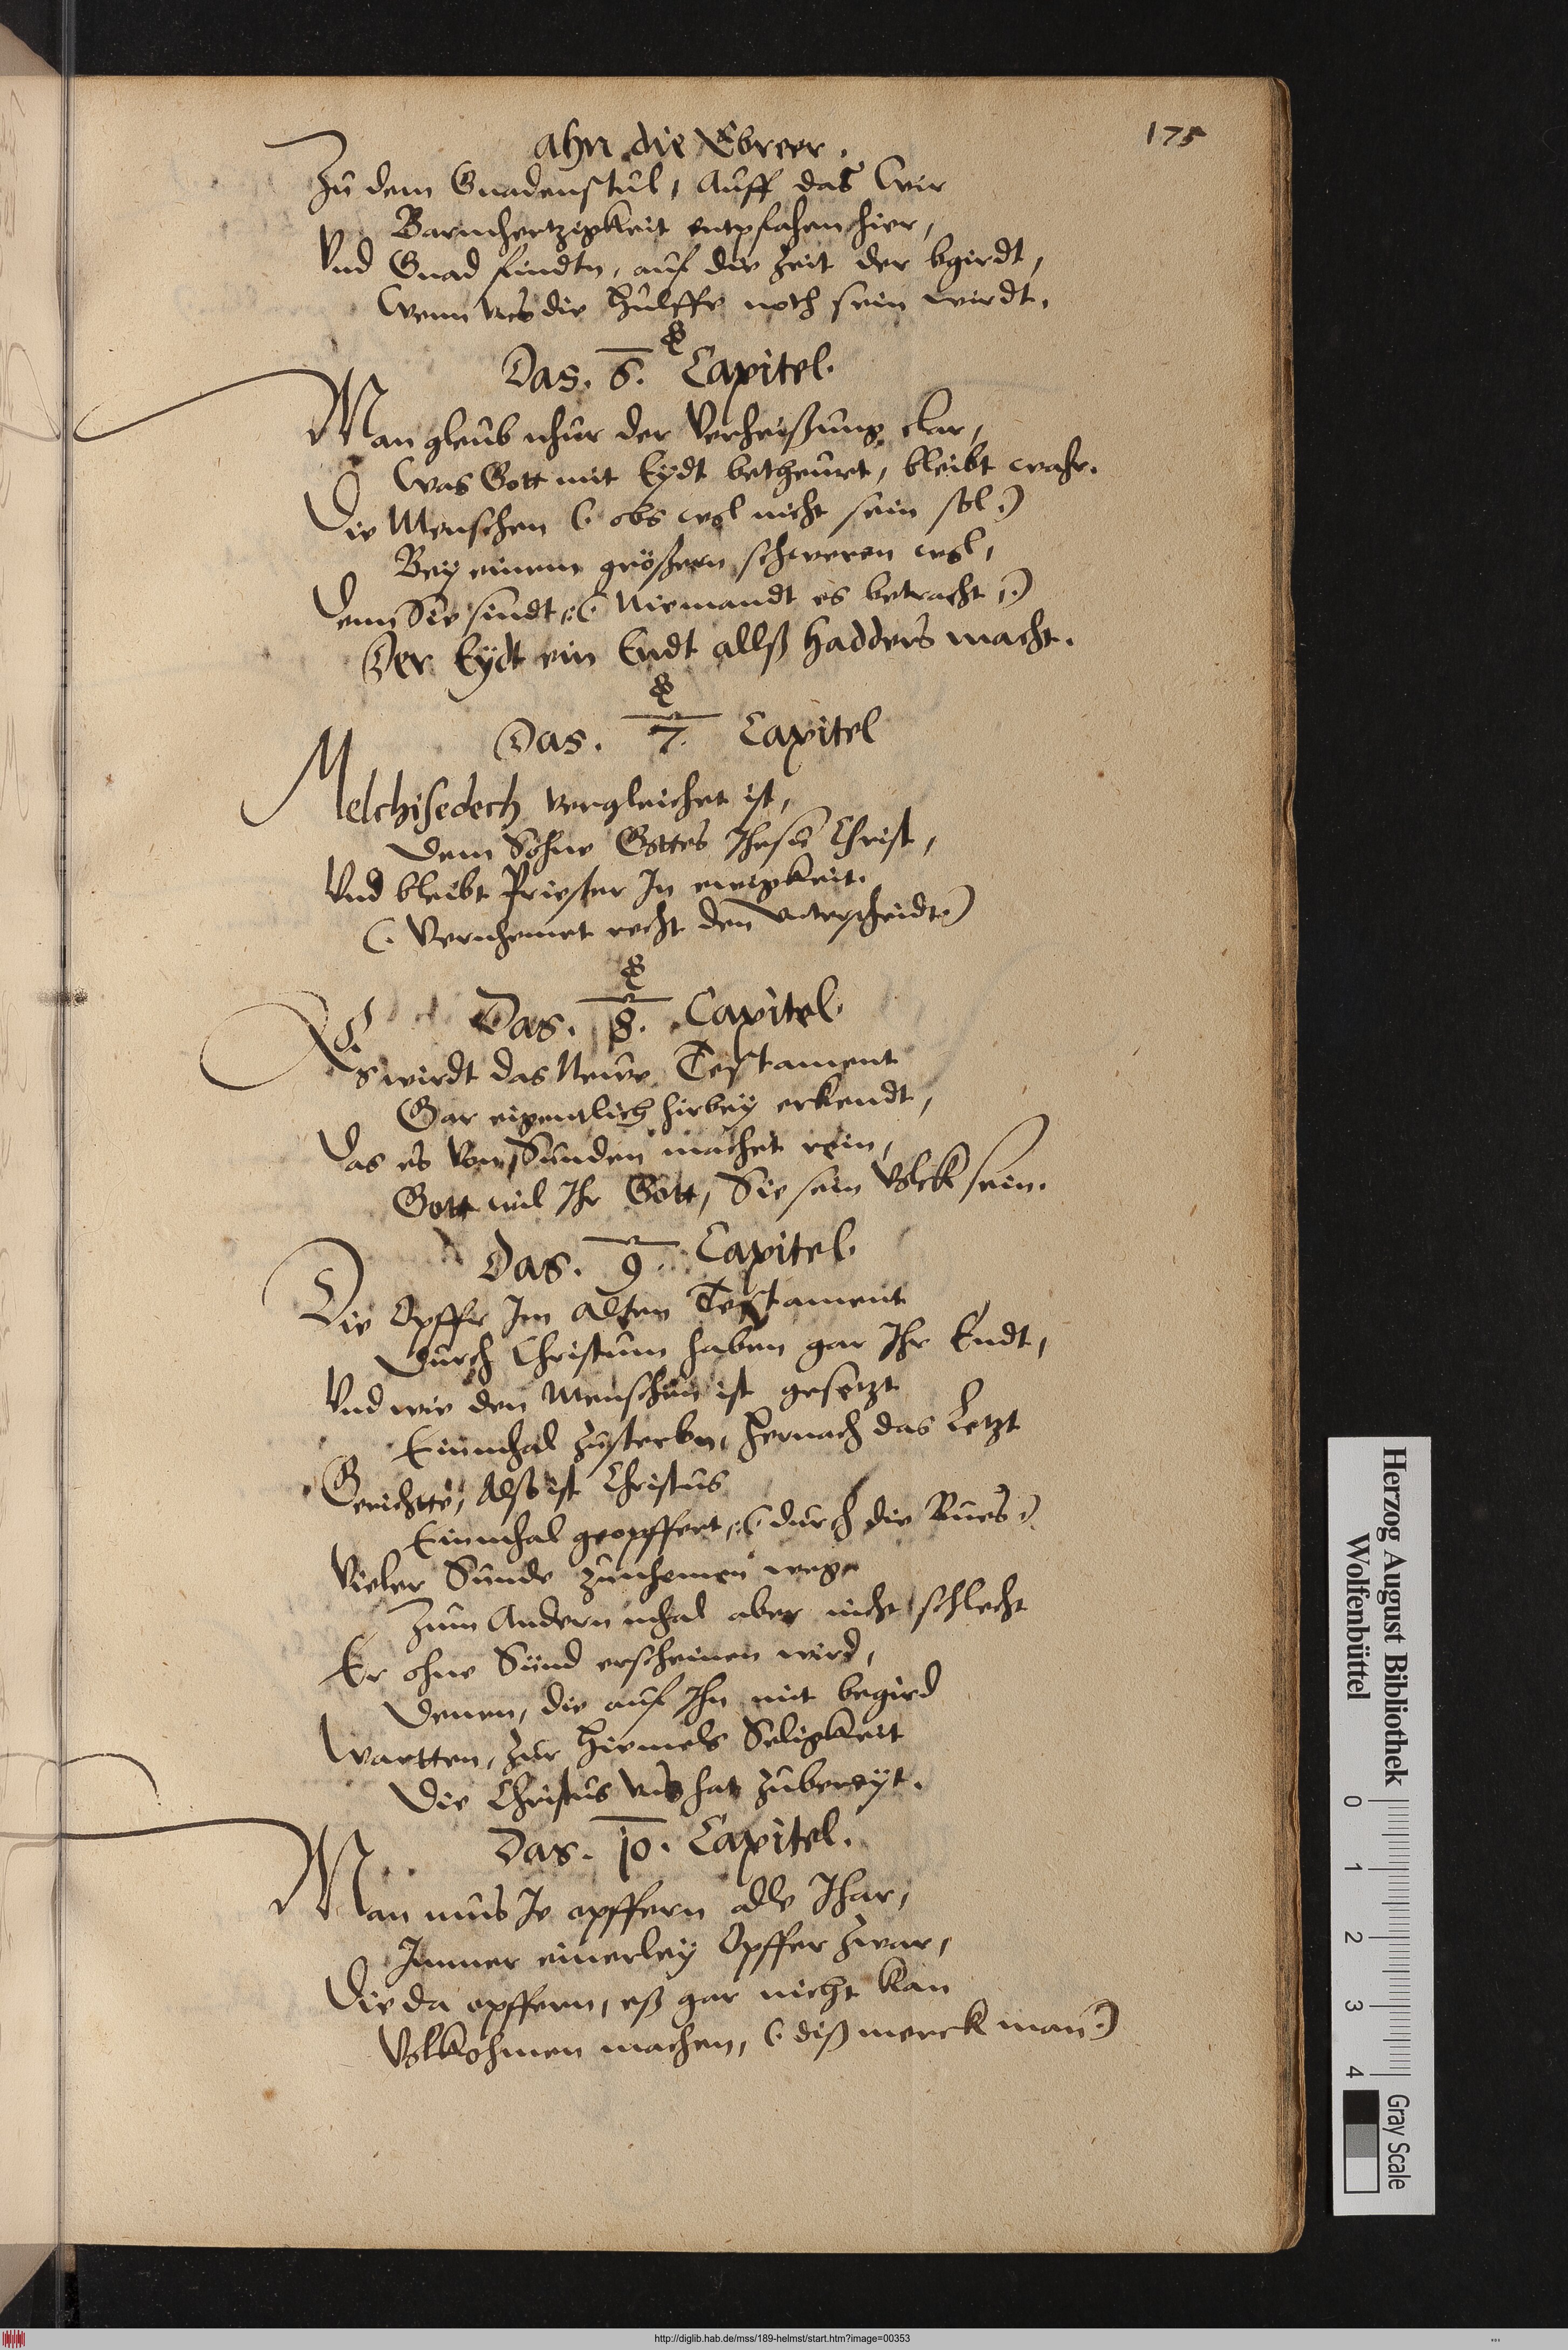 175
ahn die Ebreer.
Zu dem Gnadenstul, Auff das Wir
Barmhertzigkeit entpfahen hier,
Vnd Gnad findtn, auf die Zeit der bgirdt,
Wenn uns die hulffe noth sein wirdt.
Das. 6. Capitel.
Man gleub nhur der Verheißung clar,
Was Gott mit Eydt betheurt, bleibt wahr.
Die Menschen (obs wol nicht sein sol)
Bey einem größern schweren wol,
Denn Sie sindt, (Niemandt es betracht,)
Der Eÿdt ein Endt allß hadders macht.
Das. 7. Capitel
Melchisedech vergleichet ist,
Dem Sohne Gottes Jhesu Christ,
Vnd bleibt Priester In ewigkeit.
(Vernhemet recht den unterscheidt)
Das. 8. Capitel.
Es wirdt das Neuve Testament
Gar eigentlich hirbeÿ erkendt,
Das es von Sunden machet rein,
Gott wil Ihr Gott, Sie sein Volck sein.
Das. 9. Capitel.
Die Opffr Im alten Testament
Durch Christum haben gar Ihr Endt,
Vnd wie den Menschen ist gesetzt
Einmhal zusterbn, hernach das Letzt
Gerichtte, Also ist Christus
Einmhal geopffert, (durch die Bues)
Vieler Sunde zunhemen weg
Zum Andern mhal aber nicht schlecht
Er ohne Sünd erscheinen wird,
Denen, die auf Ihn mit begird
Wartten, zur Himels Seligkeit
Die Christus uns hat zubereÿt.
Das. 10. Capitel.
Man mus Je opffern alle Jhar,
Immer einerleÿ Opffer zwar,
Die da opffern, eß gar nicht kan
Volkohmen machen, (diß merck man)
Herzog August Bibliothek
Wolfenbüttel
0 1 2 3 4
Gray Scale
http://diglib.hab.de/mss/189-helmst/start.htm?image=00353